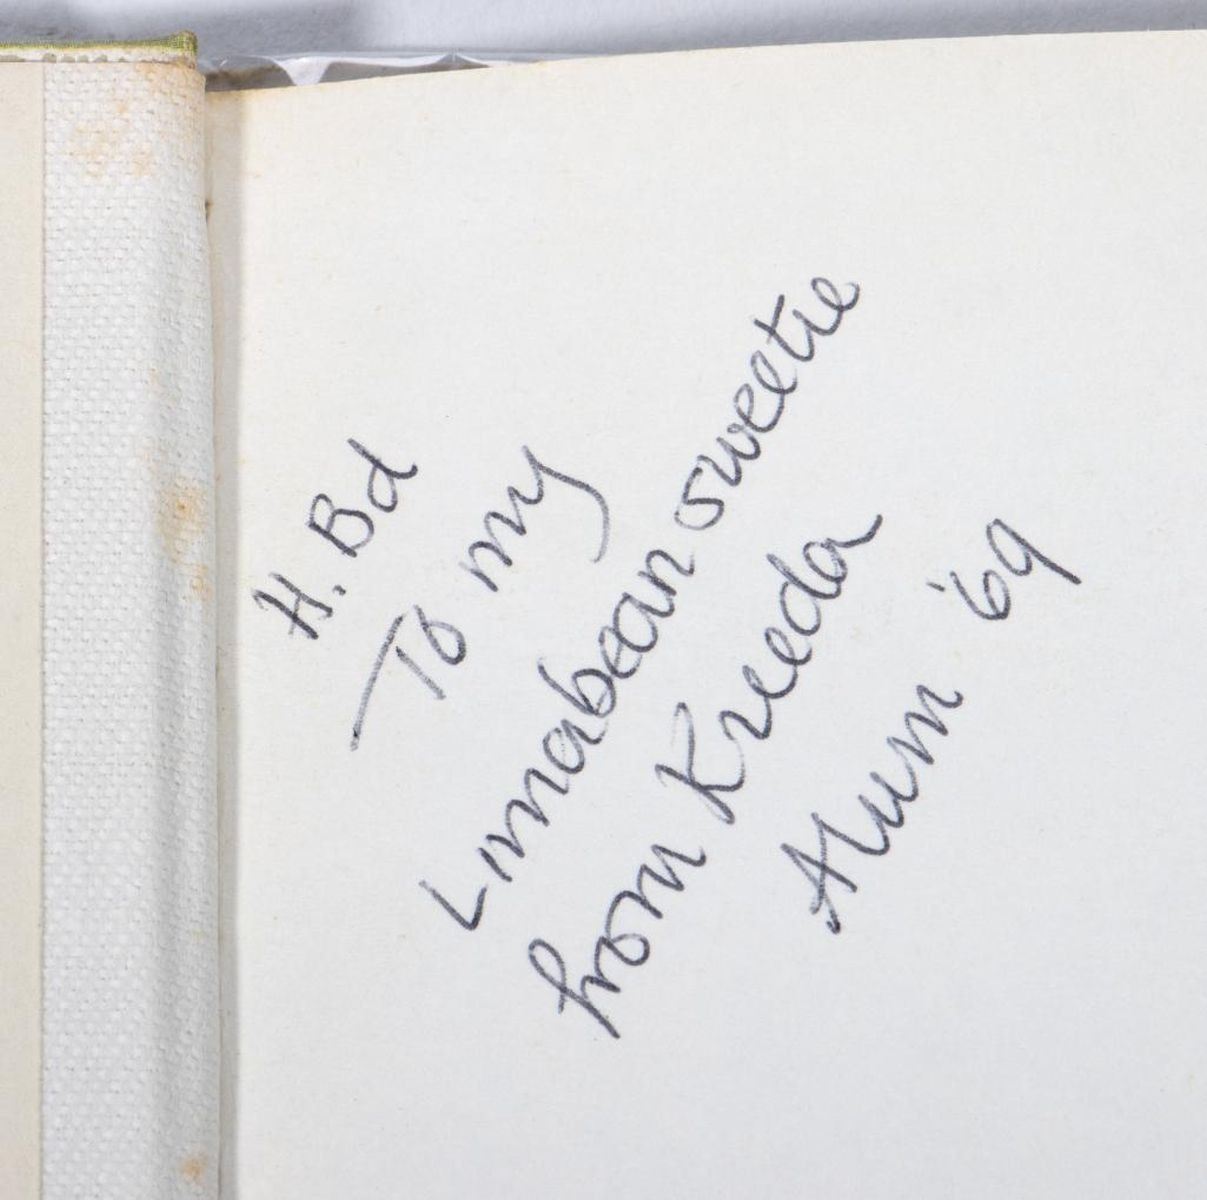 H. Bd
To my
Limabean sweetie
from Kreeda
Alum '69